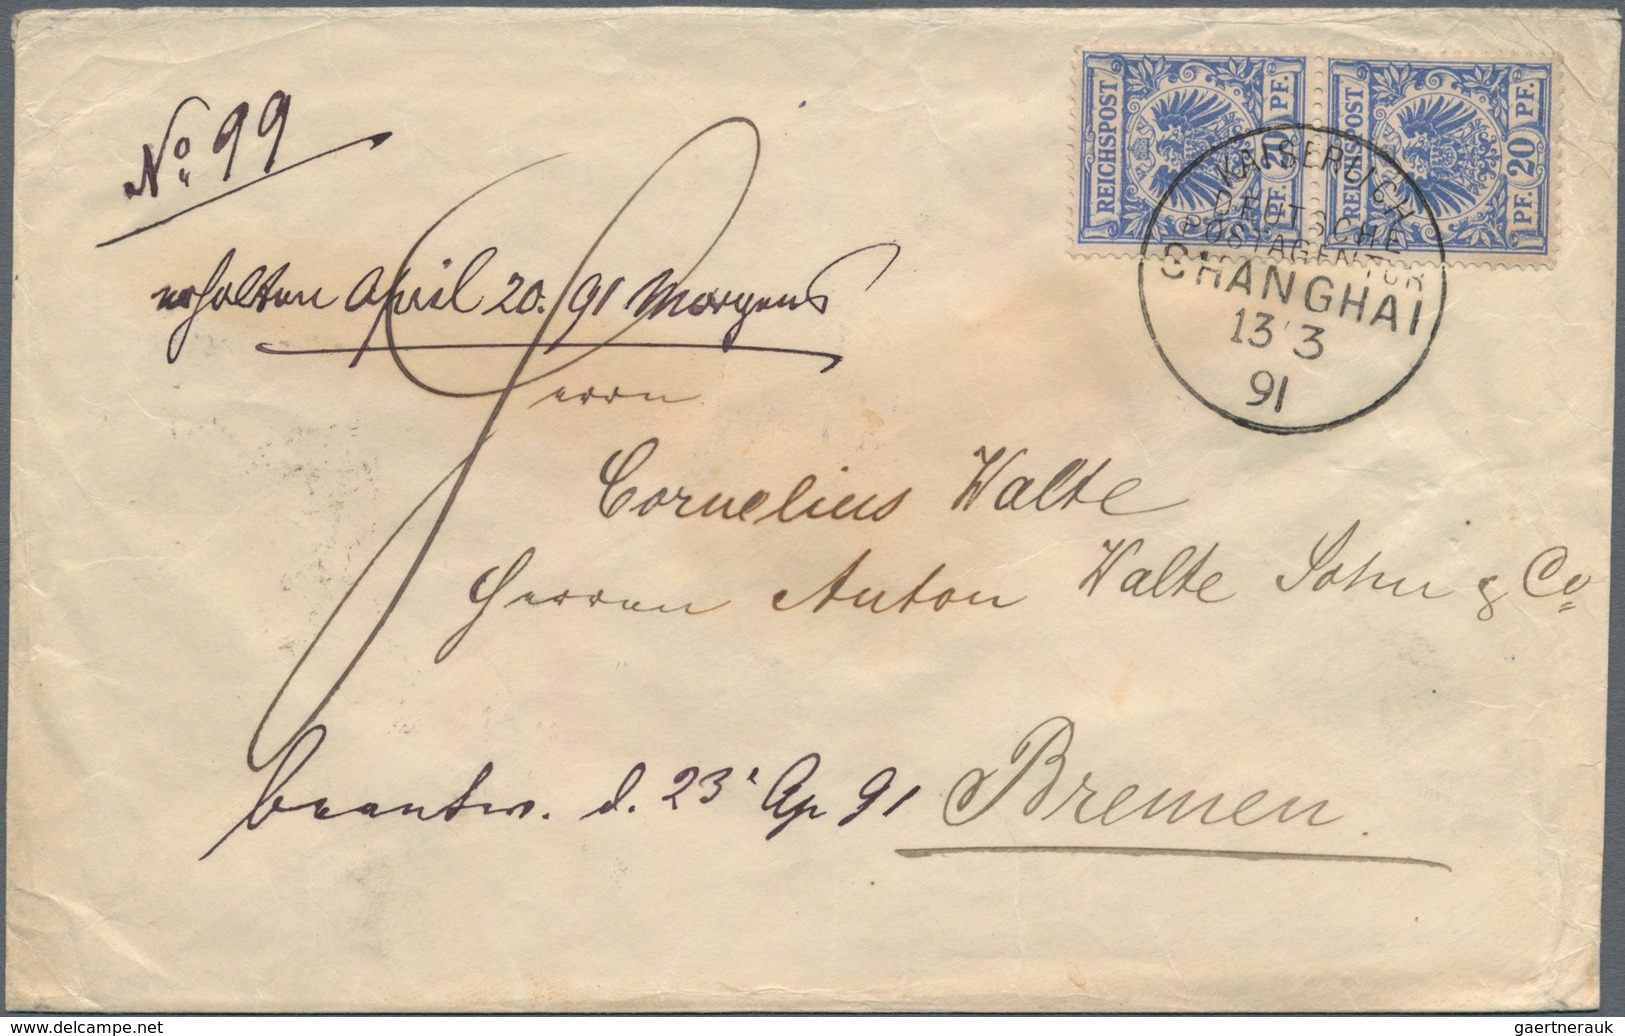 REICHSPOST 20 PF. PF.
REICHSPOST 20 PF. PF.
KAISERLICH
DEUTSCHE
POSTAGENTUR
SHANGHAI
13 3
91
No. 99
erhalten April 20. / 91 Morgens
Herrn
Cornelius Walte
Herren Anton Walte Sohn & Co
beantw. d. 23' Ap 91
Bremen.
Delcampe.net
gaertnerauk